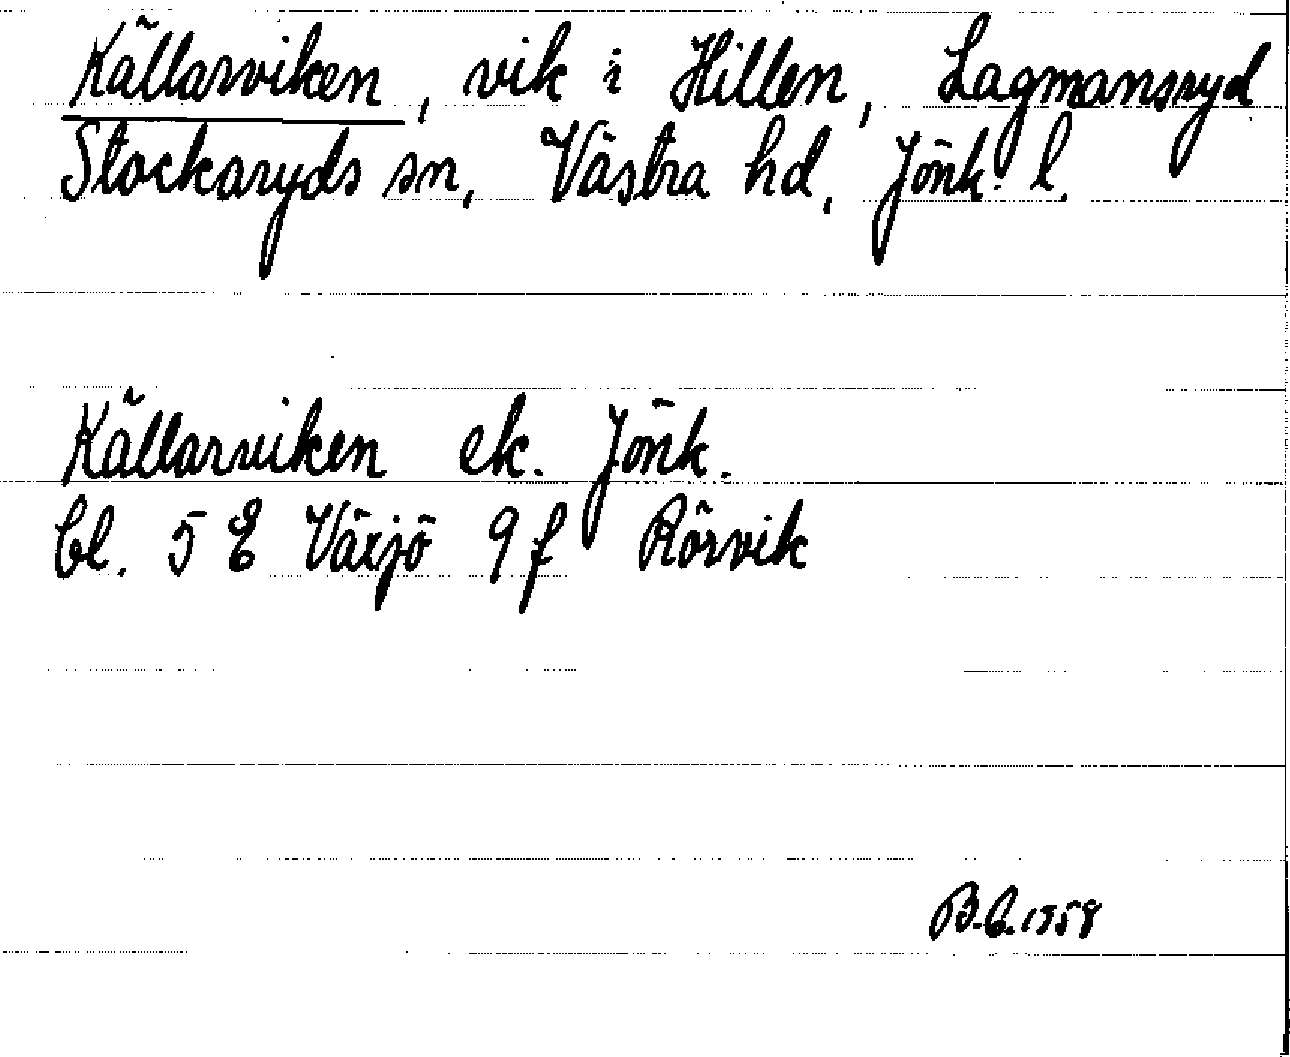 Källarviken, vik i Hillen, Lagmansryd
Stockaryds sn, Västra hd, Jönk. l.
Källarviken ek. Jönk.
bl. 5 E Växjö 9 f Rörvik
B.C. 1958